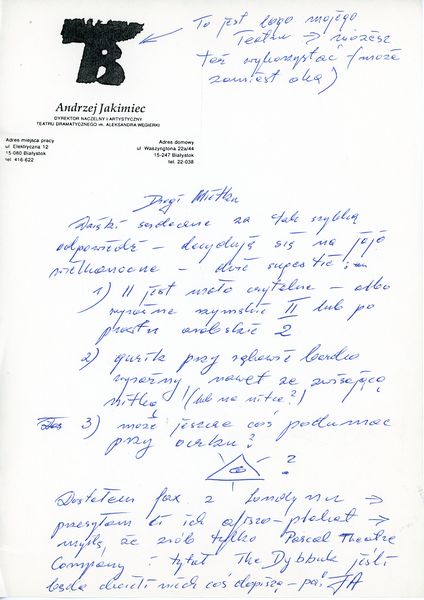 To jest logo mojego
Teatru → możesz
też wykorzystać (może
zamiast oka)
TB
Andrzej Jakimiec
DYREKTOR NACZELNY I ARTYSTYCZNY
TEATRU DRAMATYCZNEGO im. ALEKSANDRA WĘGIERKI
Adres miejsca pracy
ul. Elektryczna 12
15-080 Białystok
tel. 416-622
Adres domowy
ul. Waszyngtona 22a/44
15-247 Białystok
tel. 22-038
Drogi
Dzięki serdeczne za tak szybką
odpowiedź – decyduję się na jajo
wielkanocne –
1) II jest mało czytelne – albo
wyraźne rzymskie II lub po
prostu arabskie 2
2) guzik przy rękawie bardzo
wyraźny nawet ze zwisającą
nitką (lub na nitce?)
3) może jeszcze coś podumać
przy oczku?
?
Dostałem fax z Londynu →
przesyłam Ci ich afisze – plakat →
myślę, że zrób tylko Pascal Theatre
Company i tytuł The Dybbuk jeśli
będą chcieli niech coś dopiszą – pa! JA